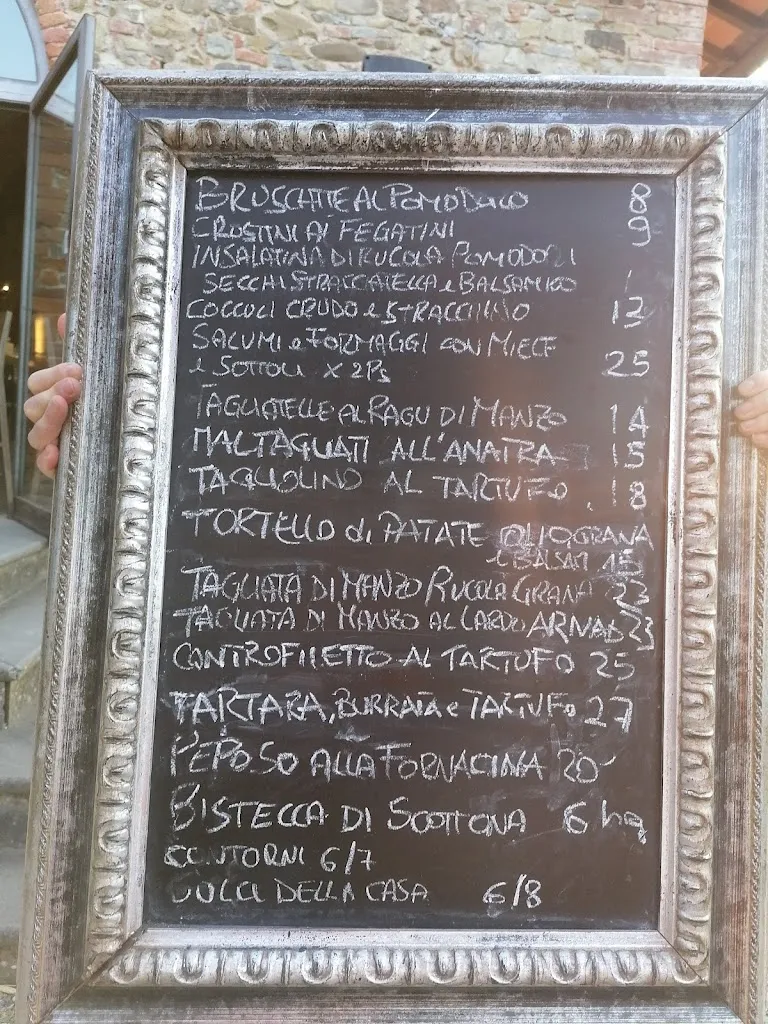 BRUSCHTTE AL POMODORO 8
CROSTINI AI FEGATINI 9
INSALATINA DI RUCOLA POMODORI
SECCHI STRACCIATELLA e BALSAMICO
COCCOLI CRUDO e STRACCHINO 13
SALUMI e FORMAGGI CON MIELE
e SOTTOLI x 2Ps 25
TAGLIATELLE AL RAGU DI MANZO 14
MALTAGLIATI ALL'ANATRA 15
TAGLIOLINO AL TARTUFO 18
TORTELLO di PATATE OLIO GRANA
e BALSAM 15
TAGLIATA DI MANZO RUCOLA GRANA 23
TAGLIATA DI MANZO AL LARDO ARNAD 23
CONTROFILETTO AL TARTUFO 25
TARTARA, BURRATA e TARTUFO 27
PEPOSO ALLA FORNACINA 20
BISTECCA DI SCOTTONA 6 hg
CONTORNI 6/7
DOLCI DELLA CASA 6/8